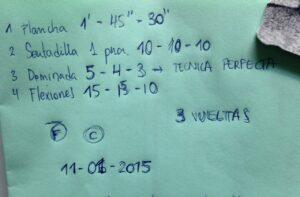 1 Plancha 1' - 45" - 30"
2 Sentadilla 1 pna. 10 - 10 - 10
3 Dominada 5 - 4 - 3 → TECNICA PERFECTA
4 Flexiones 15 - 15 - 10
F C 3 VUELTAS
11-01-2015